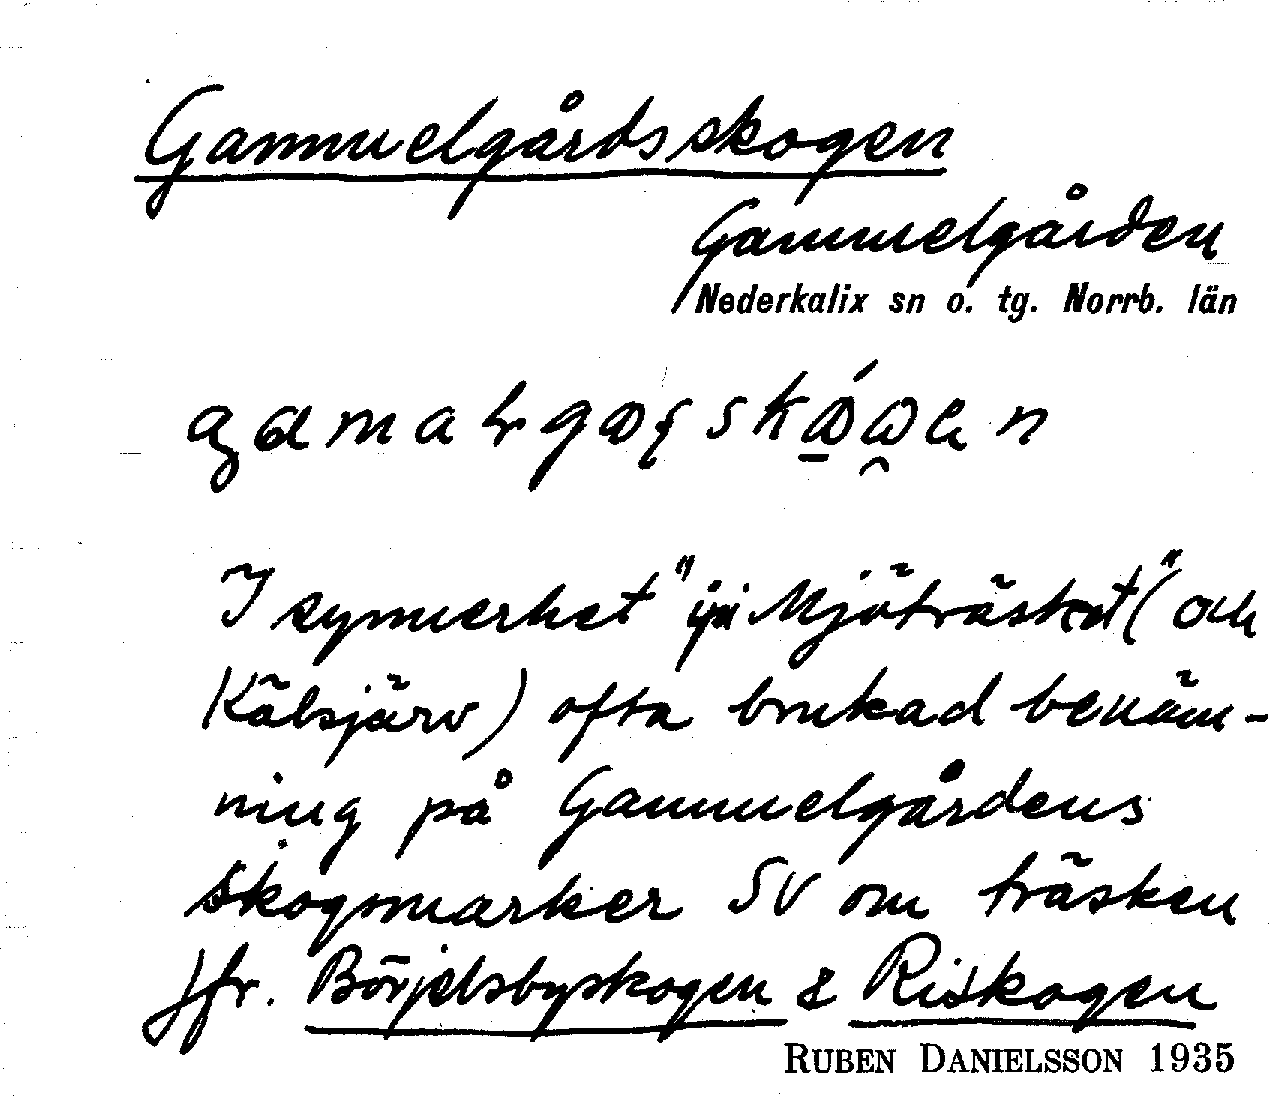 Gammelgårdsskogen
Gammelgården
Nederkalix sn o. tg. Norrb. län
I synnerhet "på Mjöträsket" (och
Kälsjärv) ofta brukad benäm-
ning på Gammelgårdens
skogsmarker SV om träsken
Jfr. Börjelsbyskogen & Riskogen
RUBEN DANIELSSON 1935